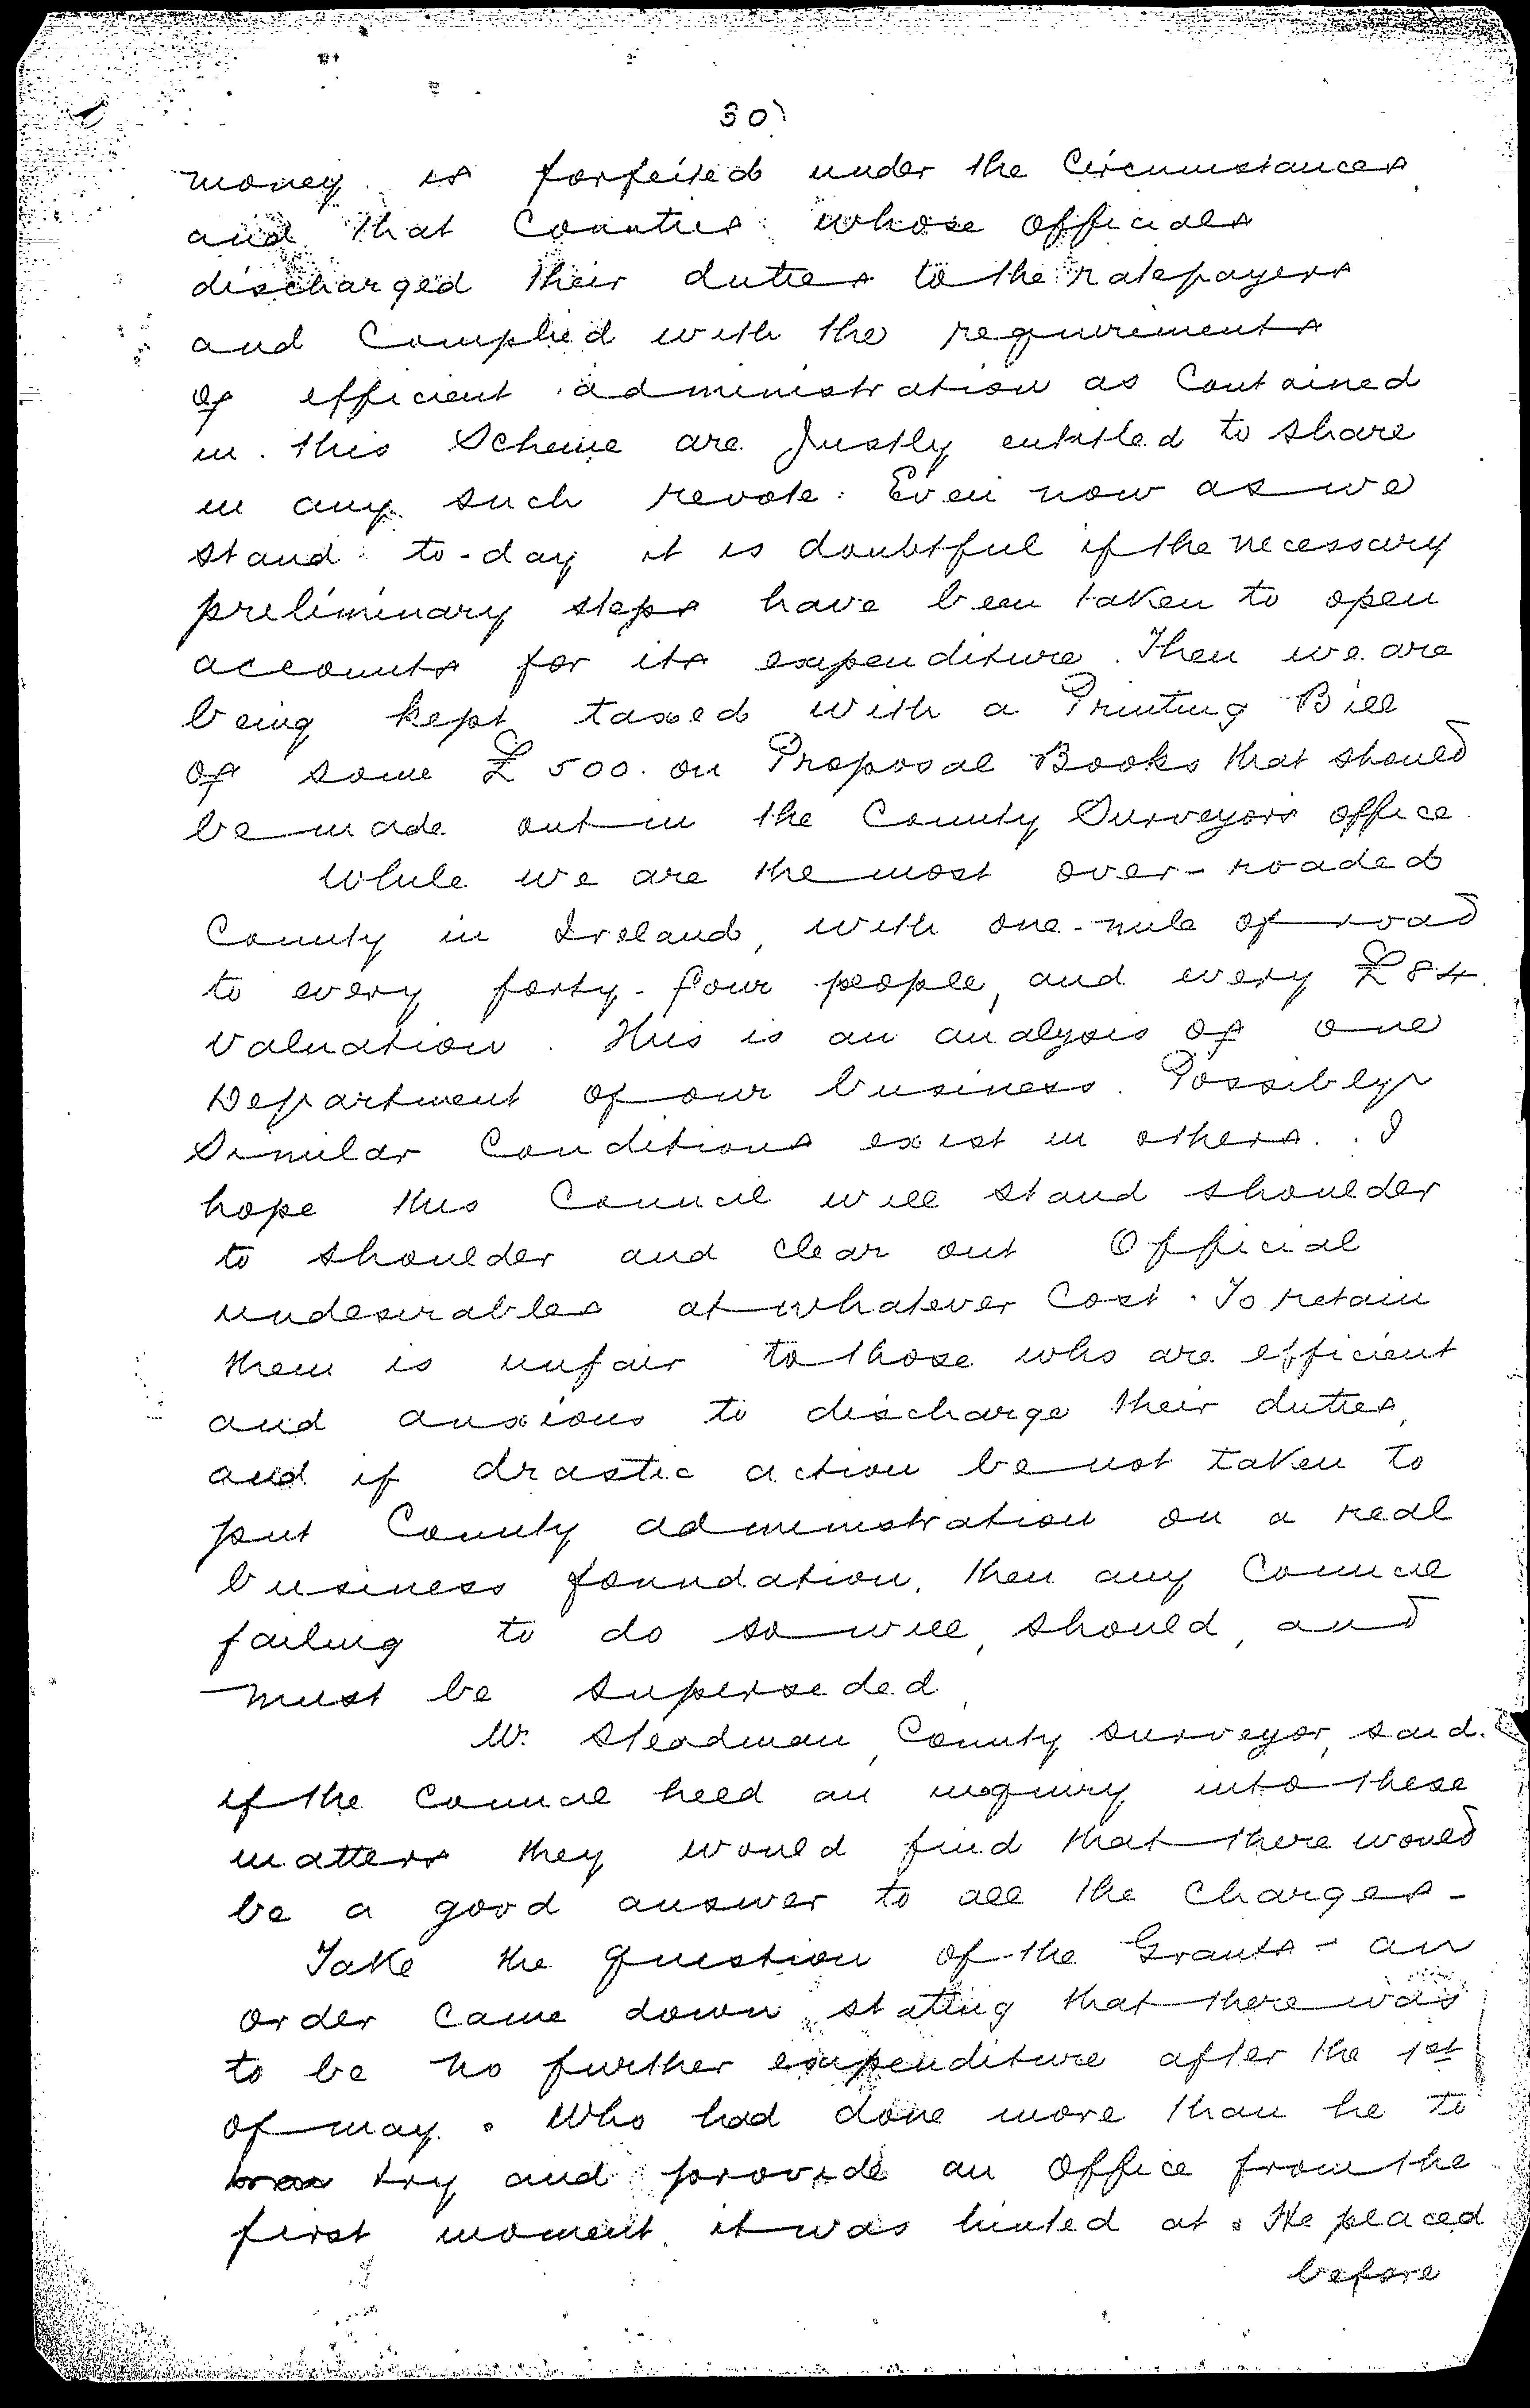 30)
money is forfeited under the Circumstances
and that Counties whose officials
discharged their duties to the ratepayers
and Complied with the requirements
of efficient administration as Contained
in this Scheme are Justly entitled to share
in any such revote. Even now as we
stand to-day it is doubtful if the necessary
preliminary steps have been taken to open
accounts for its expenditure. Then we are
being kept taxed with a Printing Bill
of some £500. on Proposal Books that should
be made out in the County Surveyors office.
While we are the most over-roaded
County in Ireland, with one-mile of road
to every forty-four people, and every £84.
Valuation. This is an analysis of one
Department of our business. Possibly
Similar Conditions exist in others. I
hope this Council will stand shoulder
to shoulder and clear out Official
undesirables at whatever Cost. To retain
them is unfair to those who are efficient
and anxious to discharge their duties,
and if drastic action be not taken to
put County administration on a real
business foundation, then any Council
failing to do so will, should, and
must be superseded.
Mr. Steadman, County surveyor, said
if the Council held an inquiry into these
matters they would find that there would
be a good answer to all the Charges -
Take the question of the Grants - an
order came down stating that there was
to be no further expenditure after the 1st
of may. Who had done more than he to
try and provide an Office from the
first moment it was hinted at. He placed
before